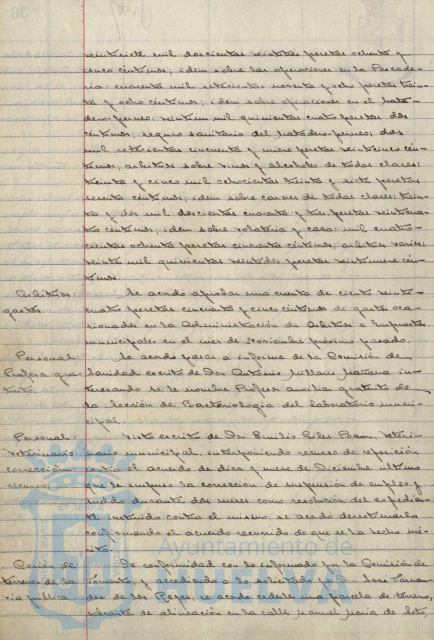 veintisiete mil doscientas veintitres pesetas ochenta y
cinco centimos; idem sobre las operaciones en la Pescade-
ria: cuarenta mil setecientas noventa y ocho pesetas trein-
ta y ocho centimos; idem sobre operaciones en el mata-
dero-perneo: veintium mil quinientas cuatro pesetas dos
centimos; seguro sanitario del matadero-perneo; dos
mil setecientas cincuenta y nueve pesetas veinticinco cen-
timos; arbitrios sobre vinos y alcoholes de todas clases:
treinta y cinco mil ochocientas treinta y siete pesetas
sesenta centimos; idem sobre carnes de todas clases: trein-
ta y dos mil doscientas cuarenta y tres pesetas veinticua-
tro centimos; idem sobre volateria y caza: mil cuatro-
cientas ochenta pesetas cincuenta centimos; arbitrios varios:
veinte mil quinientas veintidos pesetas veintinueve cen-
timos.
Arbitrios:
gastos.
Se acordó aprobar una cuenta de ciento veinti-
cuatro pesetas cincuenta y cinco centimos de gastos oca-
sionados en la Administración de Arbitrios e Impuestos
municipales en el mes de Noviembre próximo pasado.
Personal:
Profesor gra-
tuito.
Se acordó pasar a informe de la Comisión de
Sanidad escrito de Don Antonio Millane Mañana in-
teresando se le nombre Profesor auxiliar gratuito de
la Sección de Bacteriologia del laboratorio munici-
pal.
Personal:
Veterinario:
corrección
recurso.
Visto escrito de Don Emilio Giles Pason, veteri-
nario municipal, interponiendo recurso de reposición
contra el acuerdo de diez y nueve de Diciembre último
que le impuso la corrección de suspensión de empleo y
sueldo durante dos meses como resolución del expedien-
te instruido contra el mismo, se acordó desestimarlo
confirmando el acuerdo recurrido de que se ha hecho mé-
rito.
Cesión de
terrenos de la
via pública
De conformidad con lo informado por la Comisión de
Fomento, y accediendo a lo solicitado por D. José Fernan-
dez de los Reyes, se acordó cederle una parcela de terreno,
sobrante de alineación en la calle Manuel Maria de Soto,
Ayuntamiento de